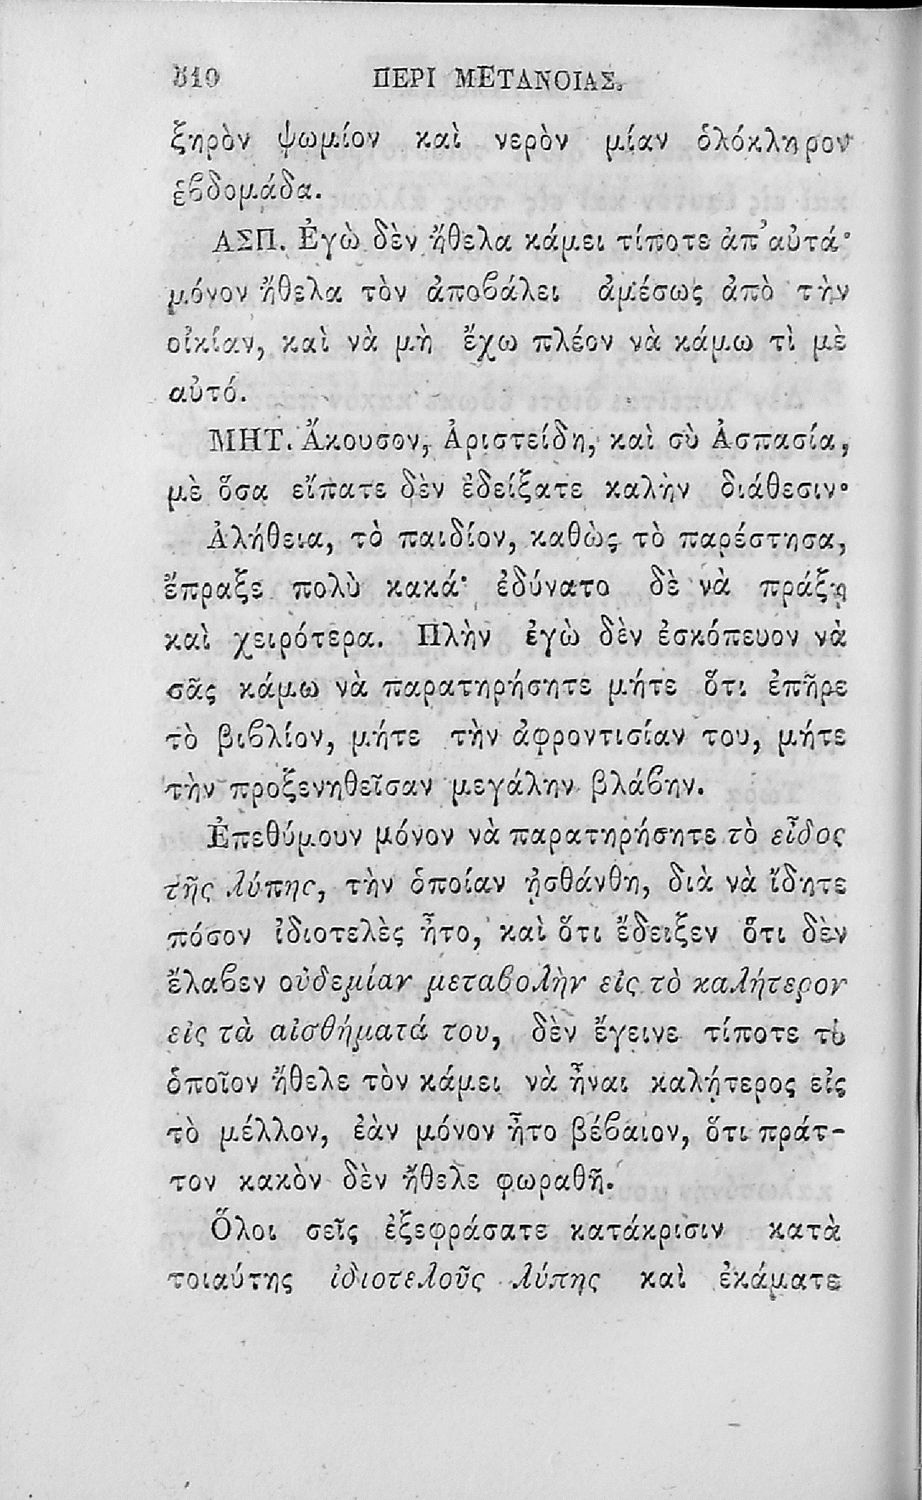 510 ΠΕΡΙ ΜΕΤΑΝΟΙΑΣ.
ξηρὸν ψωμίον καὶ νερὸν μίαν ὁλόκληρον
ἑβδομάδα.
ΑΣΠ. Ἐγὼ δὲν ἤθελα κάμει τίποτε ἀπ’ αὐτά·
μόνον ἤθελα τὸν ἀποβάλει ἀμέσως ἀπὸ τὴν
οἰκίαν, καὶ νὰ μὴ ἔχω πλέον νὰ κάμω τὶ μὲ
αὐτό.
ΜΗΤ. Ἄκουσον, Ἀριστείδη, καὶ σὺ Ἀσπασία,
μὲ ὅσα εἴπατε δὲν ἐδείξατε καλὴν διάθεσιν·
Ἀλήθεια, τὸ παιδίον, καθὼς τὸ παρέστησα,
ἔπραξε πολὺ κακά· ἐδύνατο δὲ νὰ πράξῃ
καὶ χειρότερα. Πλὴν ἐγὼ δὲν ἐσκόπευον νὰ
σᾶς κάμω νὰ παρατηρήσητε μήτε ὅτι ἐπῆρε
τὸ βιβλίον, μήτε τὴν ἀφροντισίαν του, μήτε
τὴν προξενηθεῖσαν μεγάλην βλάβην.
Ἐπεθύμουν μόνον νὰ παρατηρήσητε τὸ εἶδος
τῆς λύπης, τὴν ὁποίαν ᾐσθάνθη, διὰ νὰ ἴδητε
πόσον ἰδιοτελὲς ἦτο, καὶ ὅτι ἔδειξεν ὅτι δὲν
ἔλαβεν οὐδεμίαν μεταβολὴν εἰς τὸ καλήτερον
εἰς τὰ αἰσθήματά του, δὲν ἔγεινε τίποτε τὸ
ὁποῖον ἤθελε τὸν κάμει νὰ ἦναι καλήτερος εἰς
τὸ μέλλον, ἐὰν μόνον ἦτο βέβαιον, ὅτι πράτ-
τον κακὸν δὲν ἤθελε φωραθῆ.
Ὅλοι σεῖς ἐξεφράσατε κατάκρισιν κατὰ
τοιαύτης ἰδιοτελοῦς λύπης καὶ ἐκάματε